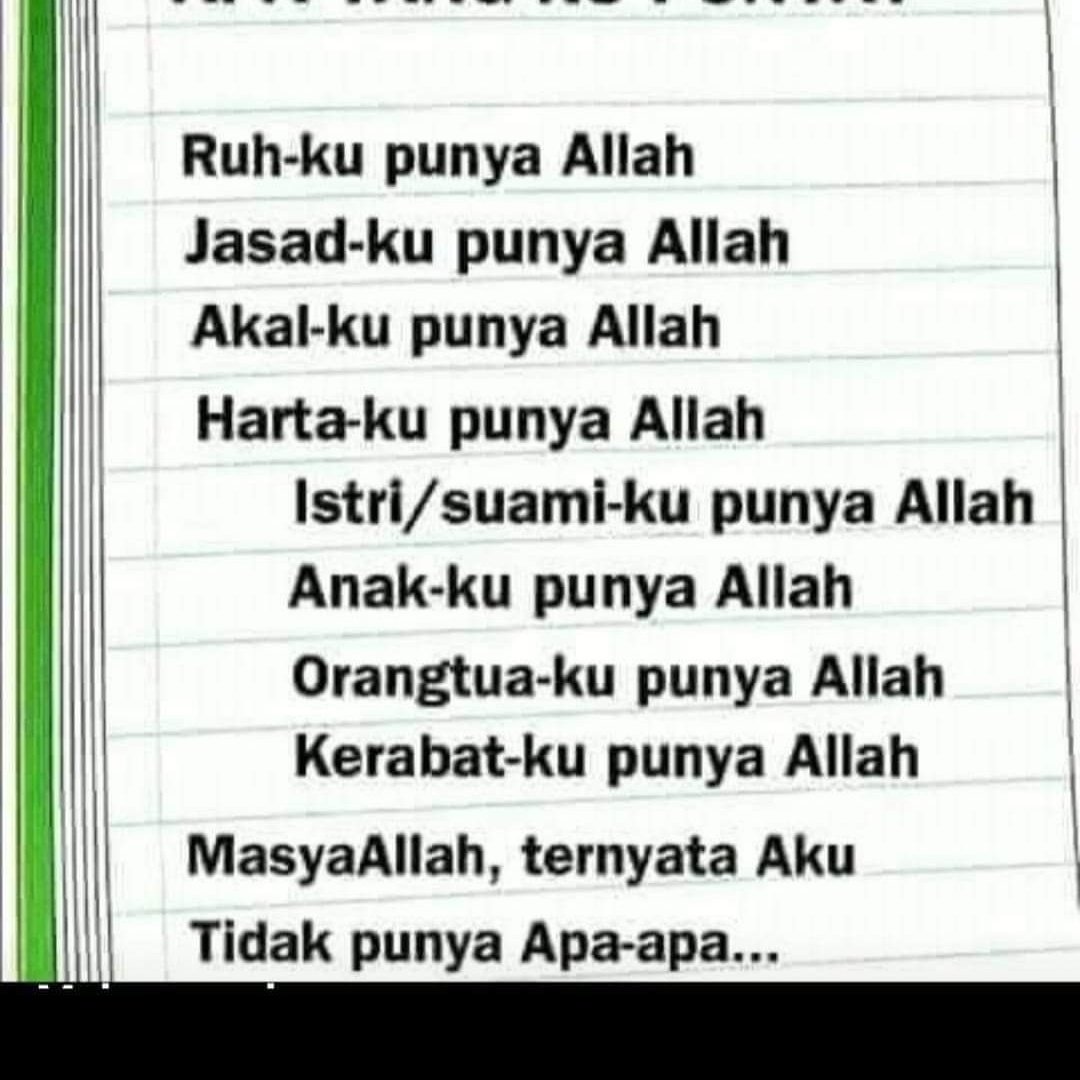 Ruh-ku punya Allah
Jasad-ku punya Allah
Akal-ku punya Allah
Harta-ku punya Allah
Istri/suami-ku punya Allah
Anak-ku punya Allah
Orangtua-ku punya Allah
Kerabat-ku punya Allah
MasyaAllah, ternyata Aku
Tidak punya Apa-apa...